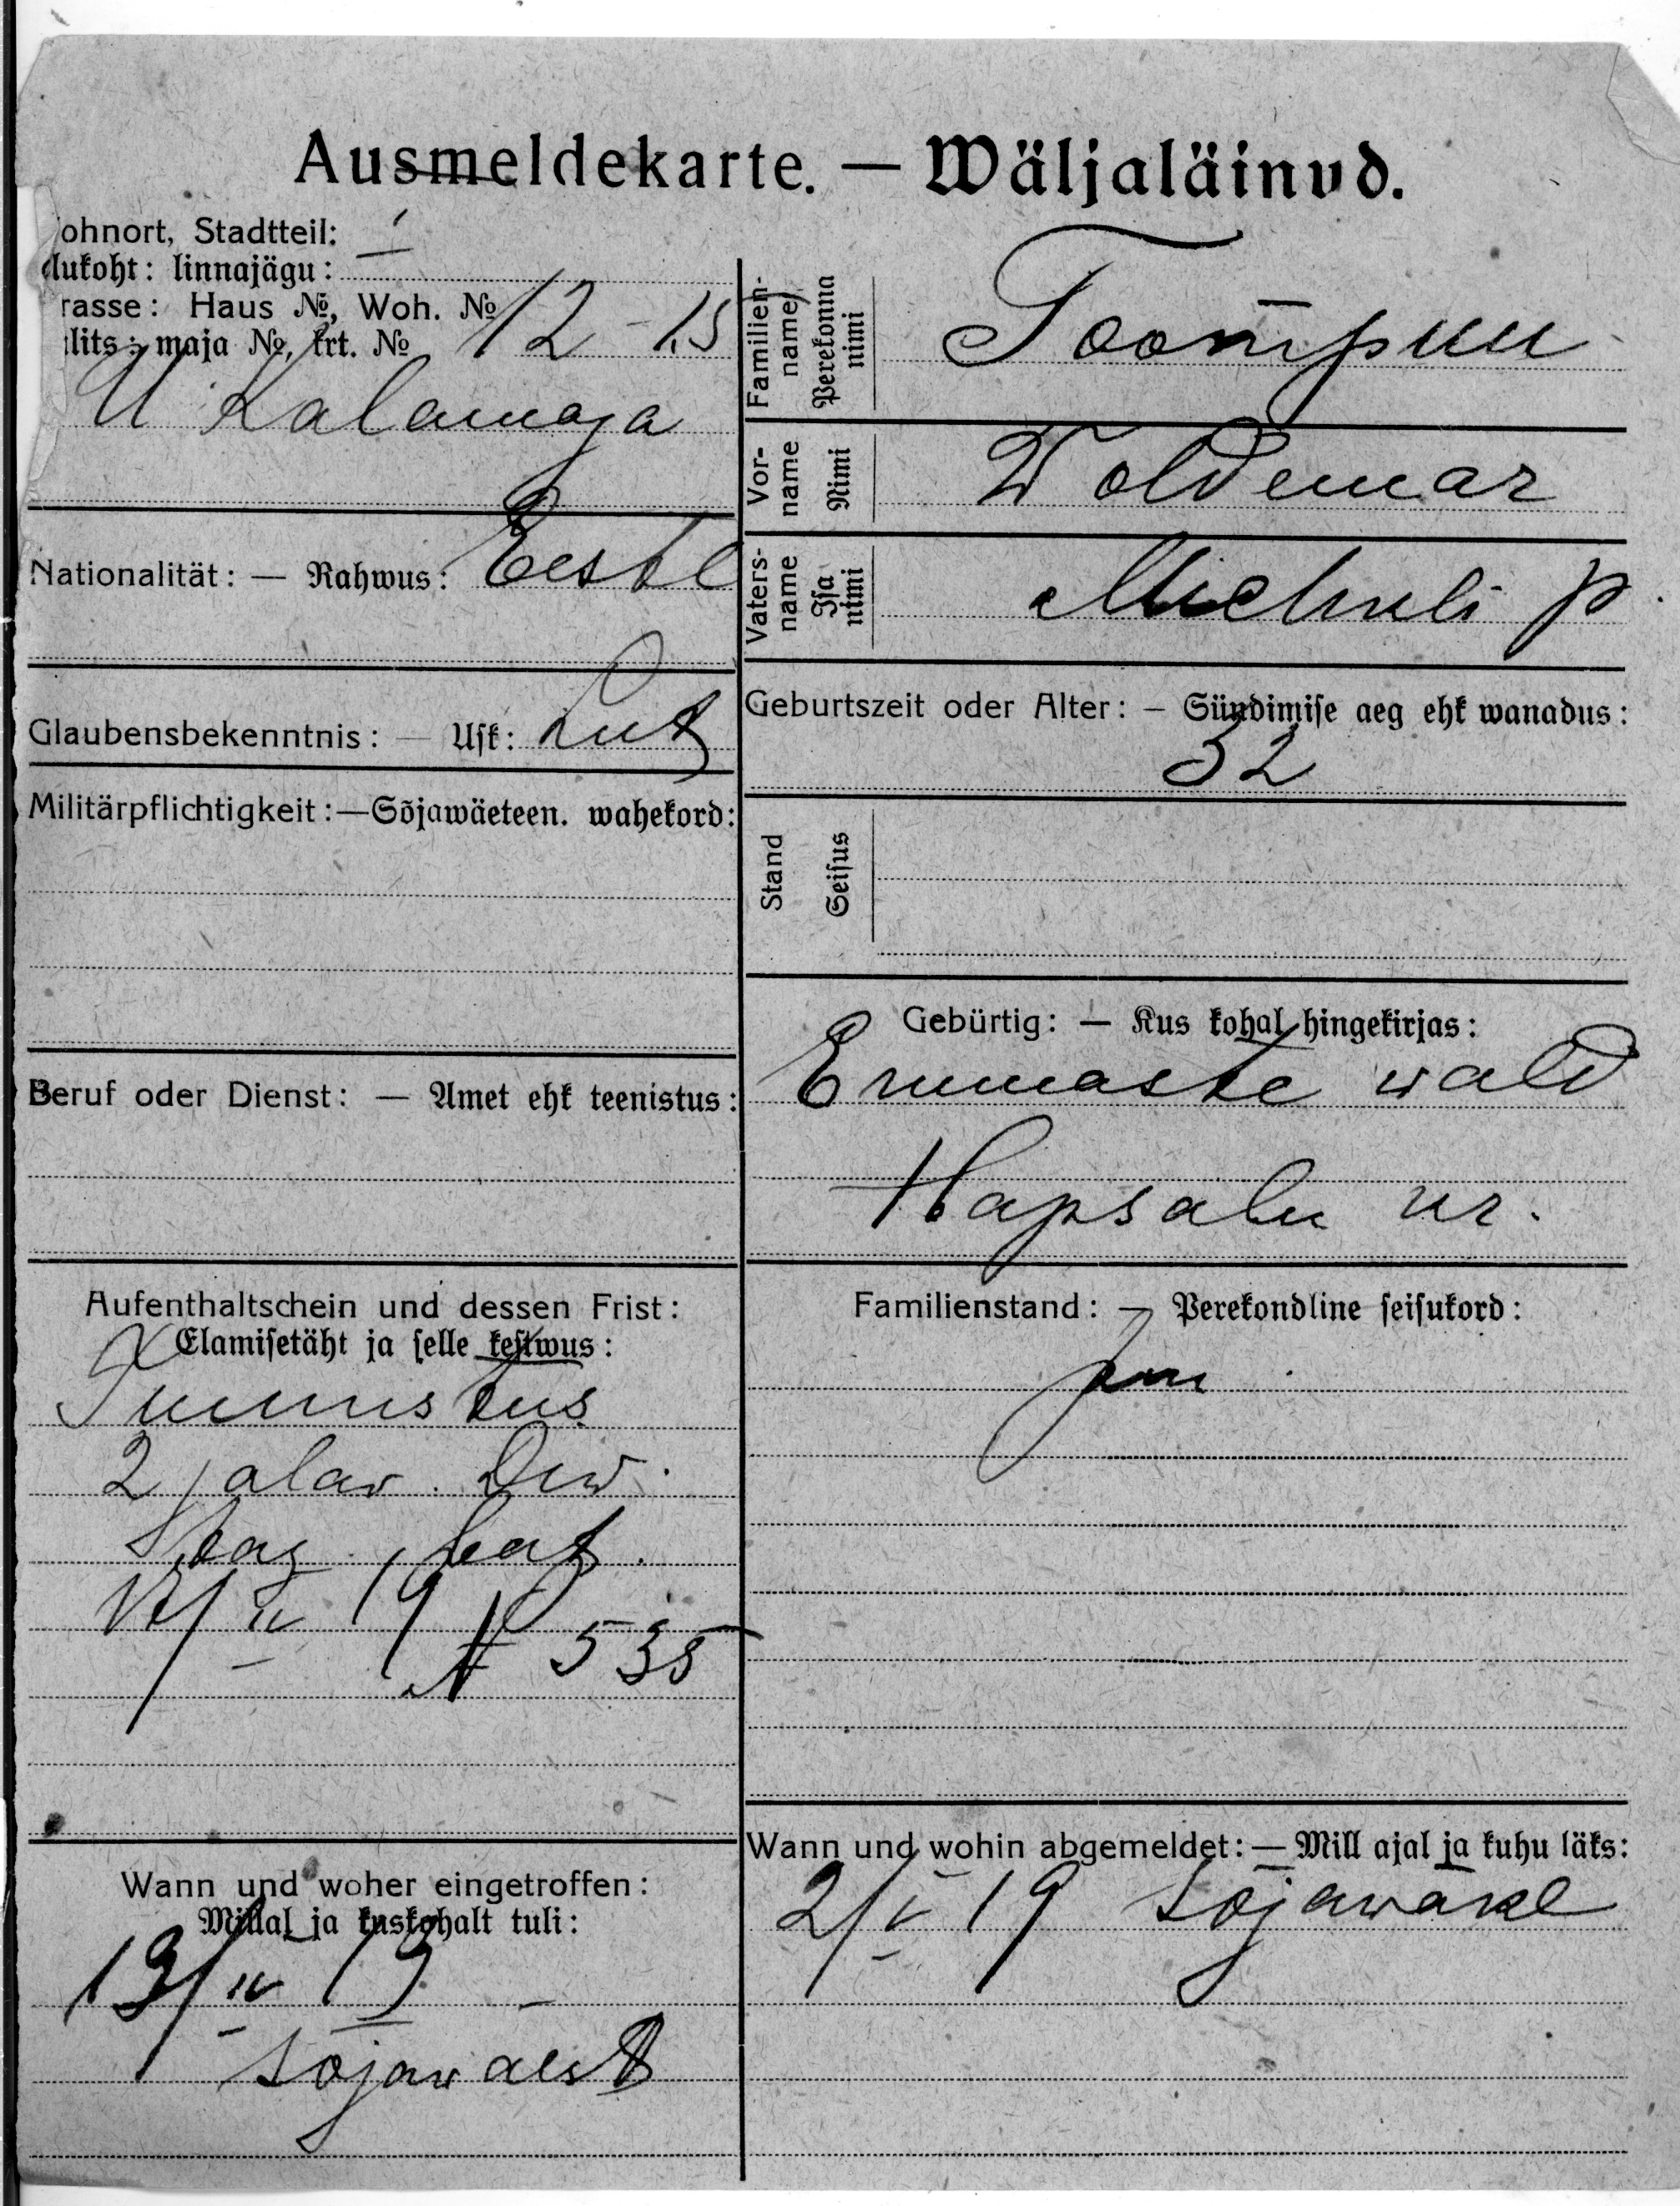 Ausmeldekarte. — Wäljaläinud.
ohnort, Stadtteil: I
lukoht: linnajägu:
rasse: Haus №, Woh. №
lits: maja №, krt. № 12 - 15
U Kalamaja
Nationalität: — Rahwus: Eestl
Glaubensbekenntnis: — Usk: Lut
Militärpflichtigkeit: — Sõjawäeteen. wahekord:
Beruf oder Dienst: — Amet ehk teenistus:
Aufenthaltschein und dessen Frist:
Elamisetäht ja selle kestwus:
Tunnistus
2 jalaw. Diw.
Tag. bat.
IV 19
№ 535
Wann und woher eingetroffen:
Millal ja kuskohalt tuli:
13/IV 19
sõjawäest
Familien-name Perekonna nimi Toompuu
Vor-name Nimi Woldemar
Vaters-name Isa nimi Michkli p
Geburtszeit oder Alter: — Sündimise aeg ehk wanadus:
32
Stand Seisus
Gebürtig: — Kus kohal hingekirjas:
Emmaste wald
Hapsalu kr.
Familienstand: — Perekondline seisukord:
Wann und wohin abgemeldet: — Mill ajal ja kuhu läks:
2/V 19 sõjawäkke